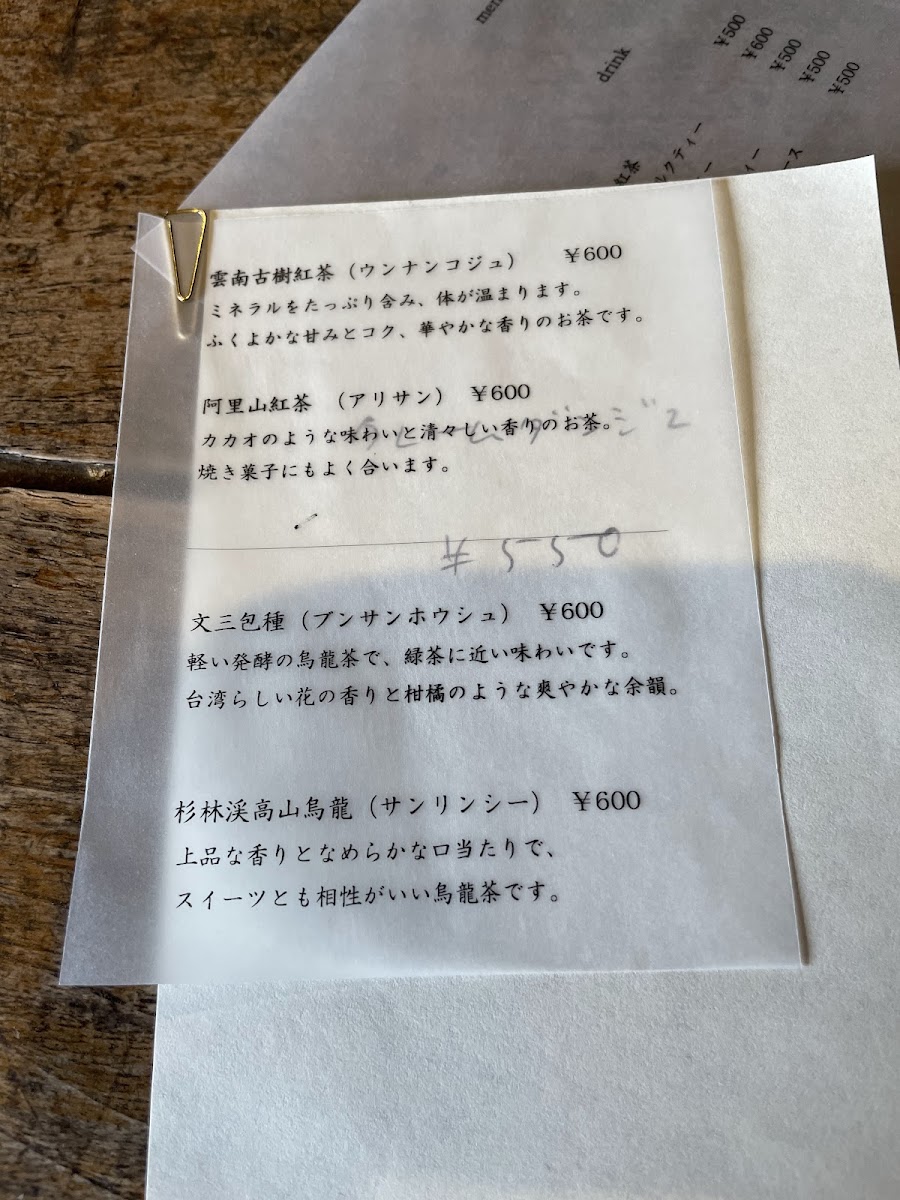 drink
¥500
¥600
¥500
¥500
¥500
紅茶
雲南古樹紅茶（ウンナンコジュ） ¥600
ミネラルをたっぷり含み、体が温まります。
ふくよかな甘みとコク、華やかな香りのお茶です。
阿里山紅茶 （アリサン） ¥600
カカオのような味わいと清々しい香りのお茶。
焼き菓子にもよく合います。
¥550
文三包種（ブンサンホウシュ） ¥600
軽い発酵の烏龍茶で、緑茶に近い味わいです。
台湾らしい花の香りと柑橘のような爽やかな余韻。
杉林渓高山烏龍（サンリンシー） ¥600
上品な香りとなめらかな口当たりで、
スイーツとも相性がいい烏龍茶です。